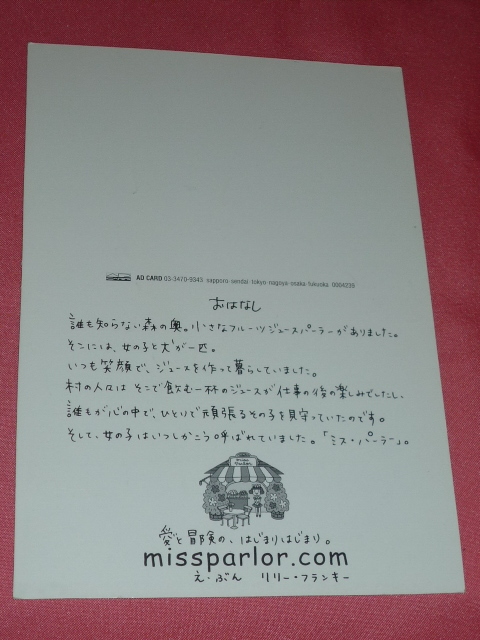 AD CARD 03-3470-9343 sapporo sendai tokyo nagoya osaka fukuoka 0004239
おはなし
誰も知らない森の奥。小さなフルーツジュースパーラーがありました。
そこには、女の子と犬が一匹。
いつも笑顔で、ジュースを作って暮らしていました。
村の人々は そこで飲む一杯のジュースが仕事の後の楽しみでしたし、
誰もが心の中で、ひとりで頑張るその子を見守っていたのです。
そして、女の子はいつしかこう呼ばれていました。「ミス・パーラー」。
愛と冒険の、はじまりはじまり。
missparlor.com
え・ぶん リリー・フランキー